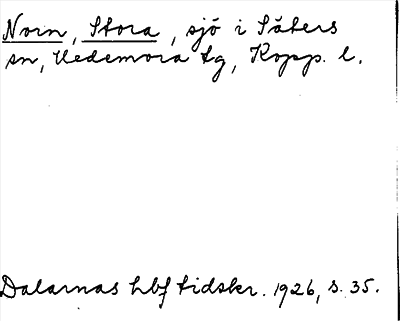 Norn, Stora, sjö i Säters
sn, Hedemora tg, Kopp. l.
Dalarnas hbf tidskr. 1926, s. 35.